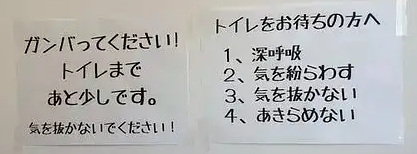 ガンバってください!
トイレまで
あと少しです。
気を抜かないでください!
トイレをお待ちの方へ
1、深呼吸
2、気を紛らわす
3、気を抜かない
4、あきらめない